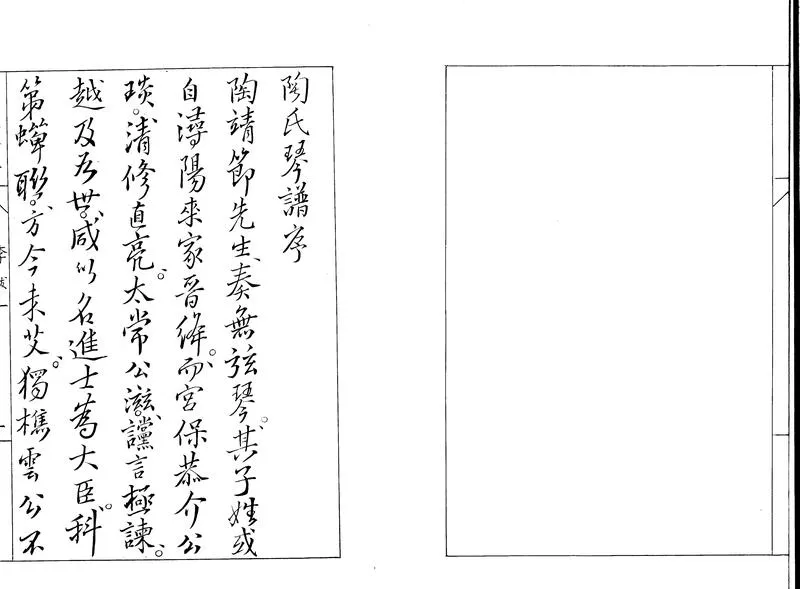 陶氏琴譜序
陶靖節先生奏無弦琴。其子姓或
自潯陽來家晉絳。而宮保恭介公
琰。清修直亮。太常公滋。讜言極諫。
越及奕世。咸以名進士為大臣。科
第蟬聯。方今未艾。獨樵雲公不